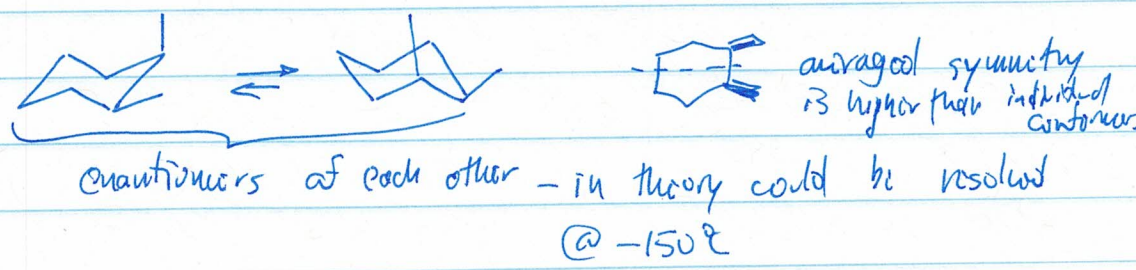 averaged symmetry
is higher than individual
conformers
enantiomers of each other – in theory could be resolved
@ –150°C